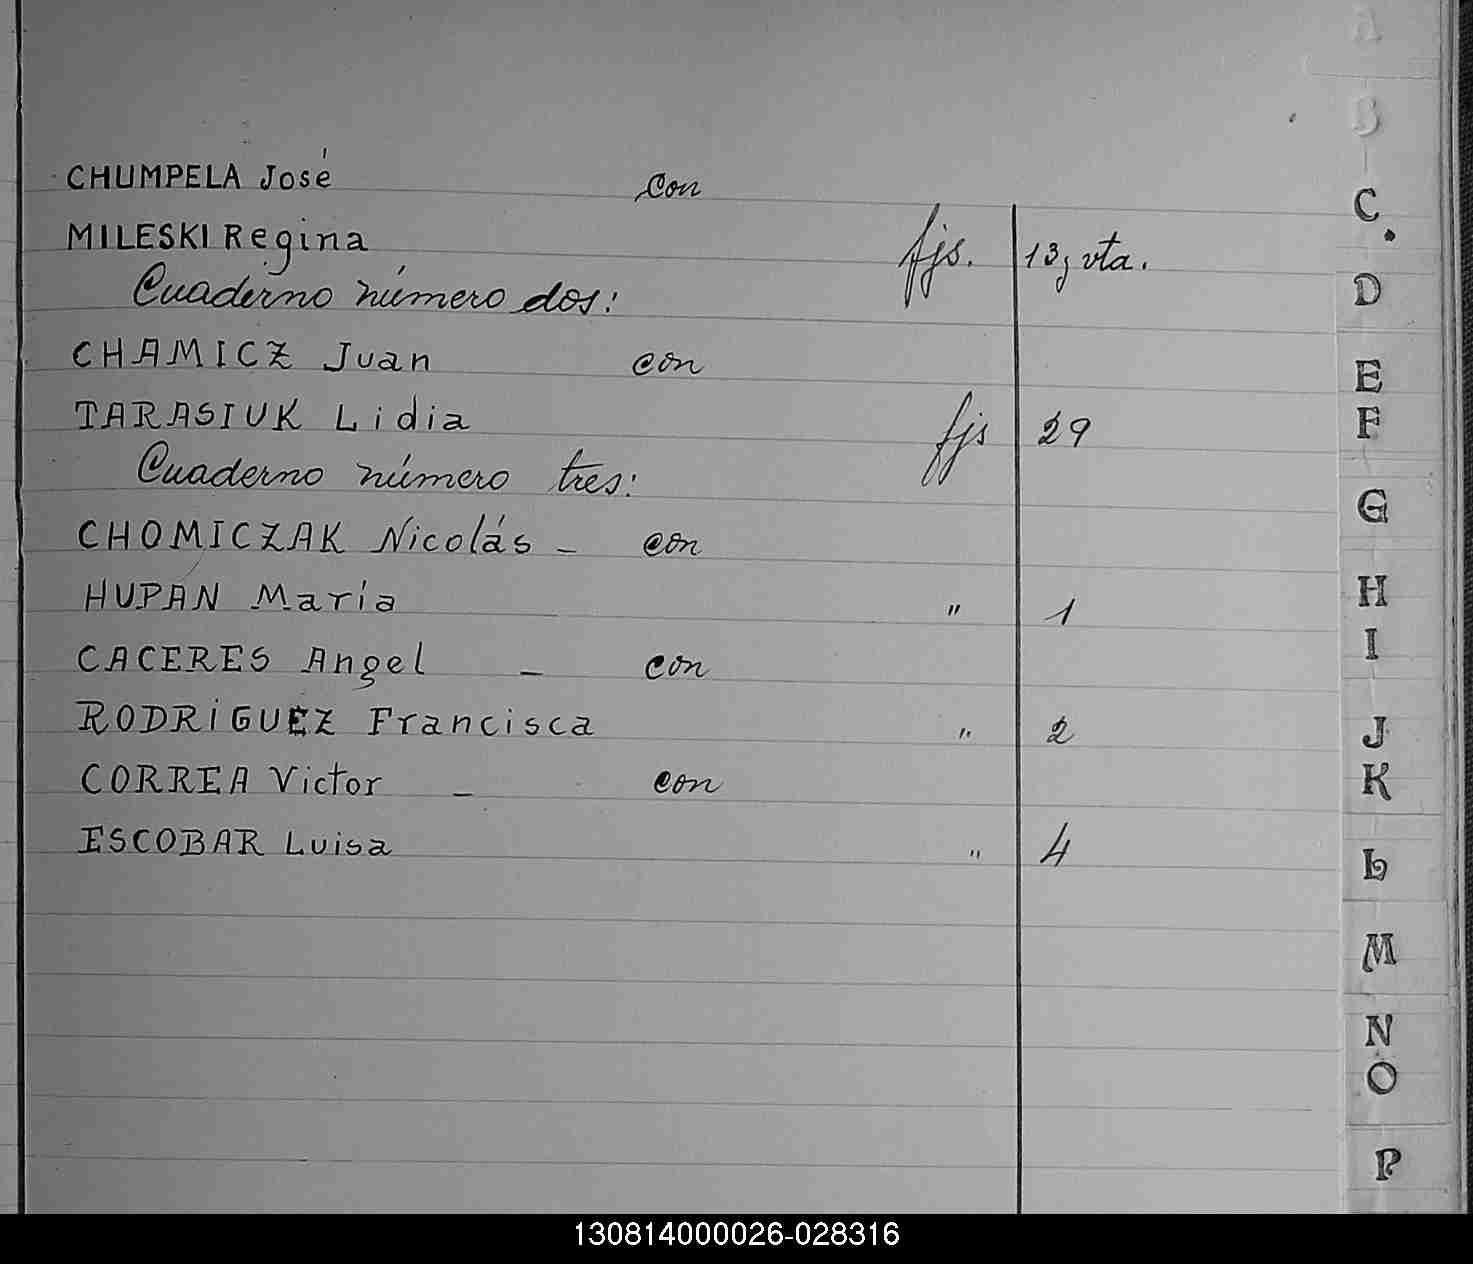 CHUMPELA José con
MILESKI Regina fjs. 13, vta.
Cuaderno número dos:
CHAMICZ Juan con
TARASIUK Lidia fjs 29
Cuaderno número tres:
CHOMICZAK Nicolás - con
HUPAN María " 1
CACERES Angel - con
RODRIGUEZ Francisca " 2
CORREA Victor - con
ESCOBAR Luisa " 4
A
B
C
D
E
F
G
H
I
J
K
L
M
N
O
P
130814000026-028316